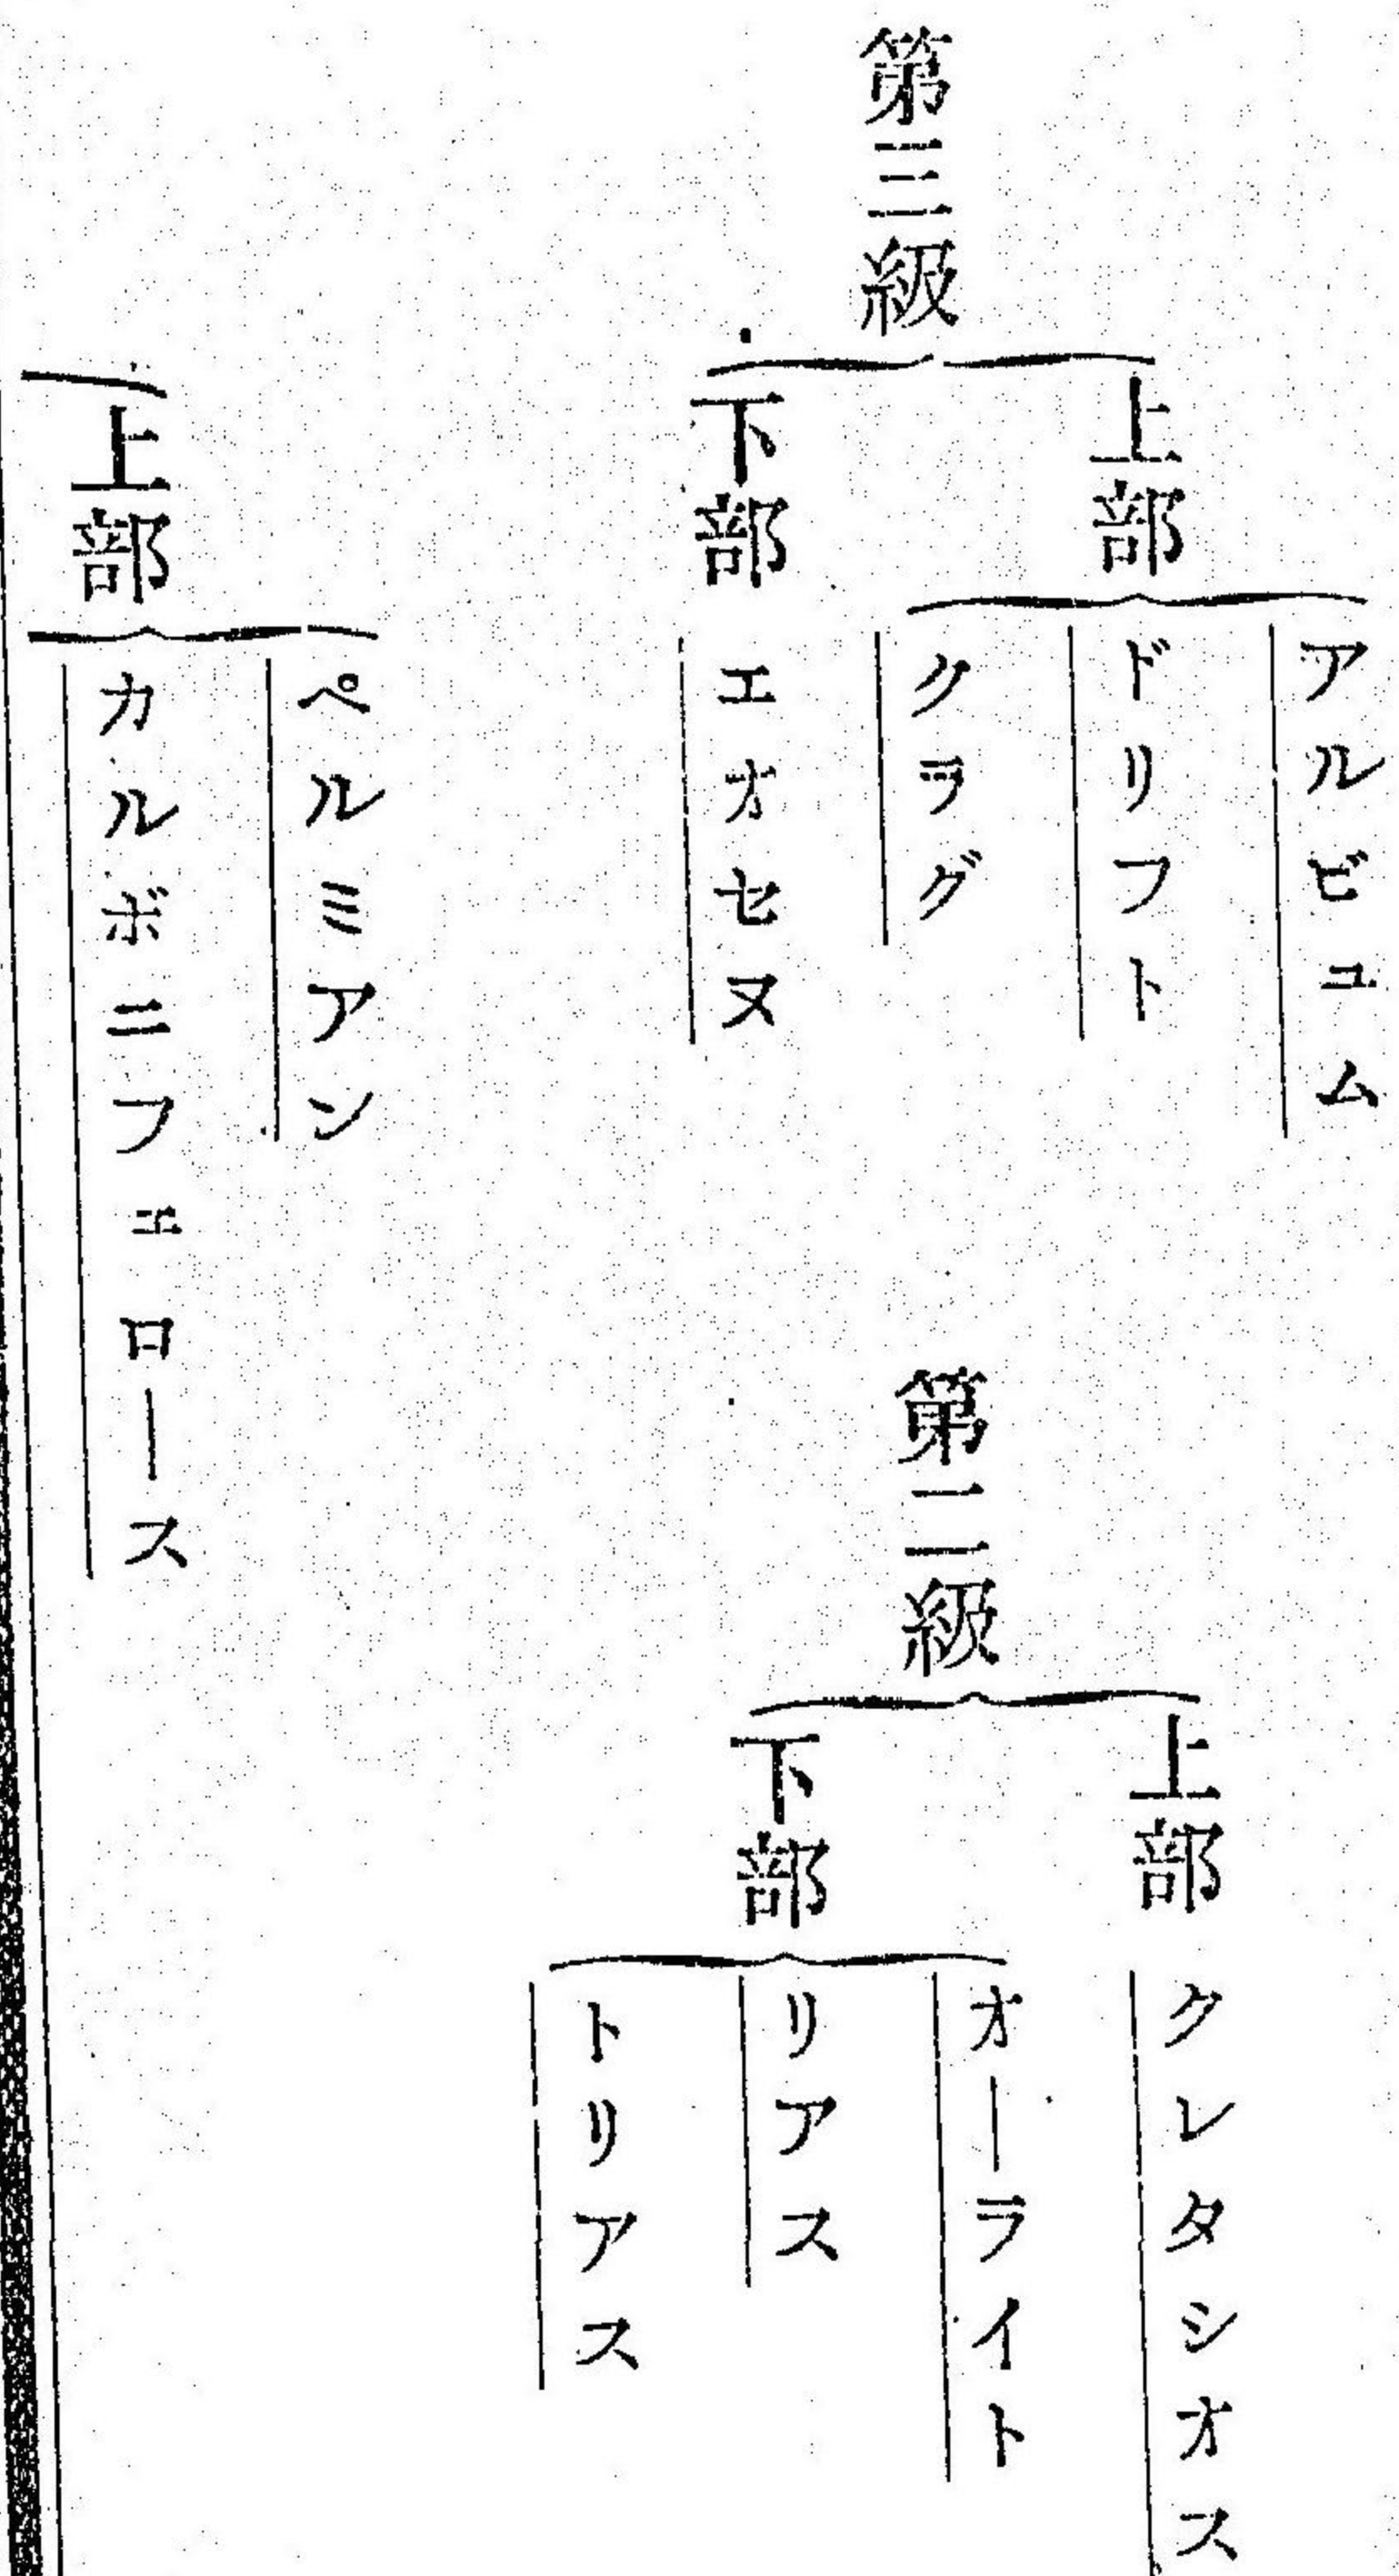 第三級
上部
アルビュム
ドリフト
クラグ
下部
エオセヌ
第二級
上部
クレタシオス
下部
オーライト
リアス
トリアス
上部
ペルミアン
カルボニフェロース